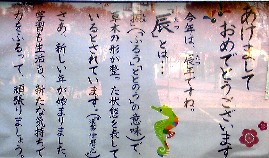 あけまして
おめでとうございます
今年は、辰年ですね。
辰とは…
(ふるう)(ととのう)の意味で、
草木の形が整った状態を表して
いるとされています。
さあ、新しい年が始まりました。
学習も生活も、新たな気持ちで
力をふるって、頑張りましょう。